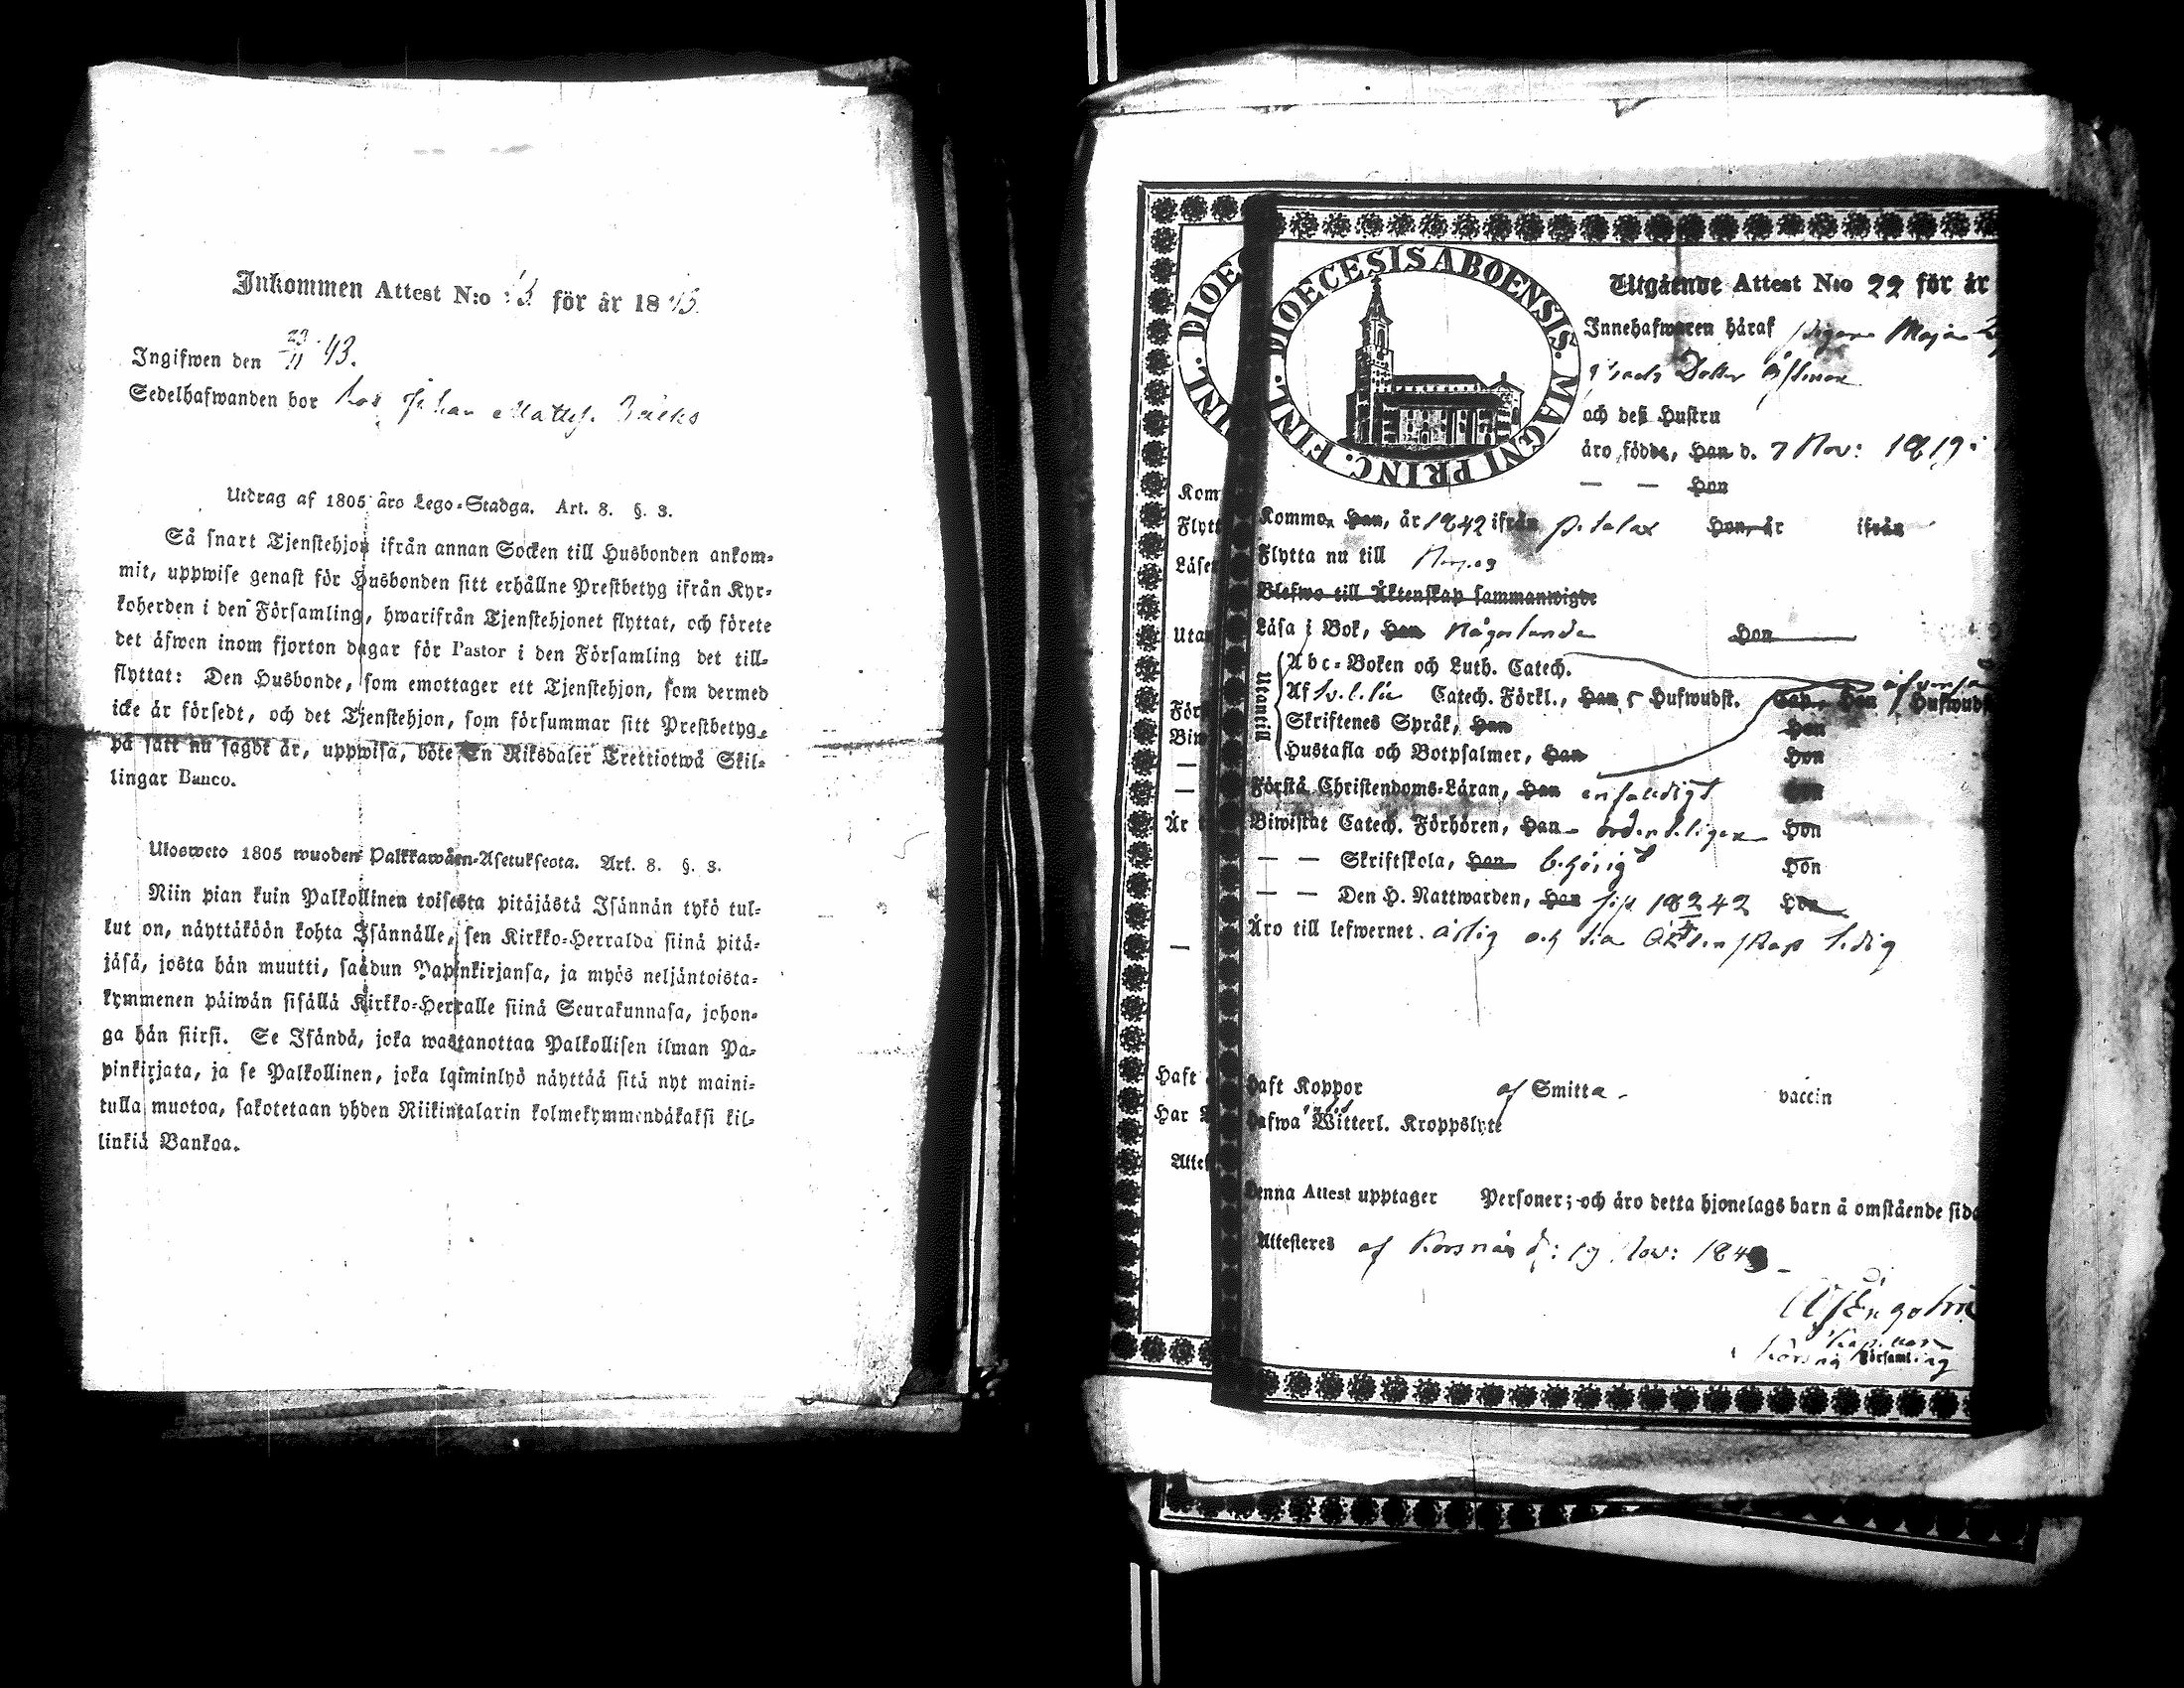 Inkommen Attest N:o för år 18
Ingifwen den 23/11 43.
Sedelhafwanden bor hos Johan Matts.
Utdrag af 1805 års Lego-Stadga. Art. 8. §. 3.
Så snart Tjenstehjon ifrån annan Socken till Husbonden ankom-
mit, uppwise genast för Husbonden sitt erhållne Prestbetyg ifrån Kyr-
koherden i den Församling, hwarifrån Tjenstehjonet flyttat, och förete
det äfwen inom fjorton dagar för Pastor i den Församling det till-
flyttat: Den Husbonde, som emottager ett Tjenstehjon, som dermed
icke är försedt, och det Tjenstehjon, som försummar sitt Prestbetyg,
på sätt nu sagdt är, uppwisa, böte En Riksdaler Trettiotwå Skil-
lingar Banco.
Ulosweto 1805 wuoden Palkkawäen-Asetuksesta. Art. 8. §. 3.
Niin pian kuin Palkollinen toisesta pitäjästä Isännän tykö tul-
lut on, näyttäköön kohta Isännälle, sen Kirkko-Herralda siinä pitä-
jäsä, josta hän muutti, saadun Papinkirjansa, ja myös neljäntoista-
kymmenen päiwän sisällä Kirkko-Herralle siinä Seurakunnasa, johon-
ga hän siirsi. Se Isändä, joka wastanottaa Palkollisen ilman Pa-
pinkirjata, ja se Palkollinen, joka laiminlyö näyttää sitä nyt maini-
tulla muotoa, sakotetaan yhden Riikintalarin kolmekymmendäkaksi kil-
linkiä Bankoa.
DIOE
FINL. DIOECESIS ABOENSIS. MAGNI PRINC.
Utgående Attest N:o 22 för år
Innehafwaren häraf pigan Maja
Isacks Dotter Östman
och deß Hustru
äro födde, Han d. 7 Nov: 1819 i
— — Hon
Kommo, Han, år 1842 ifrån Petalax Hon, år ifrån
Flytta nu till
Blefwo till Äktenskap sammanwigde
Läsa i Bok, Han någorlunda Hon
Utantill
Abc-Boken och Luth. Catech.
Af Catech. Förkl., Han 5 Hufwudst. Cap., Hon Hufwudst
Skriftenes Språk, Han Hon
Hustafla och Botpsalmer, Han Hon
Förstå Christendoms-Läran, Han enfaldigt Hon
Biwistat Catech. Förhören, Han ordenteligen Hon
— — Skriftskola, Han behörigt Hon
— — Den H. Nattwarden, Han sist 1842 Hon
Äro till lefwernet ärlig och till Äktenskap ledig
Haft Koppor af Smitta vaccin
Hafwa Witterl. Kroppslyte
Denna Attest upptager Personer; och äro detta hjonelags barn å omstående sida
Attesteras af Korsnäs d: 19 Nov: 184
Engholm
Kapellan
Korsnäs Församling
Kom
Flytt
Läse
Utan
För
Biw
—
—
Är
—
Haft
Har
Attes